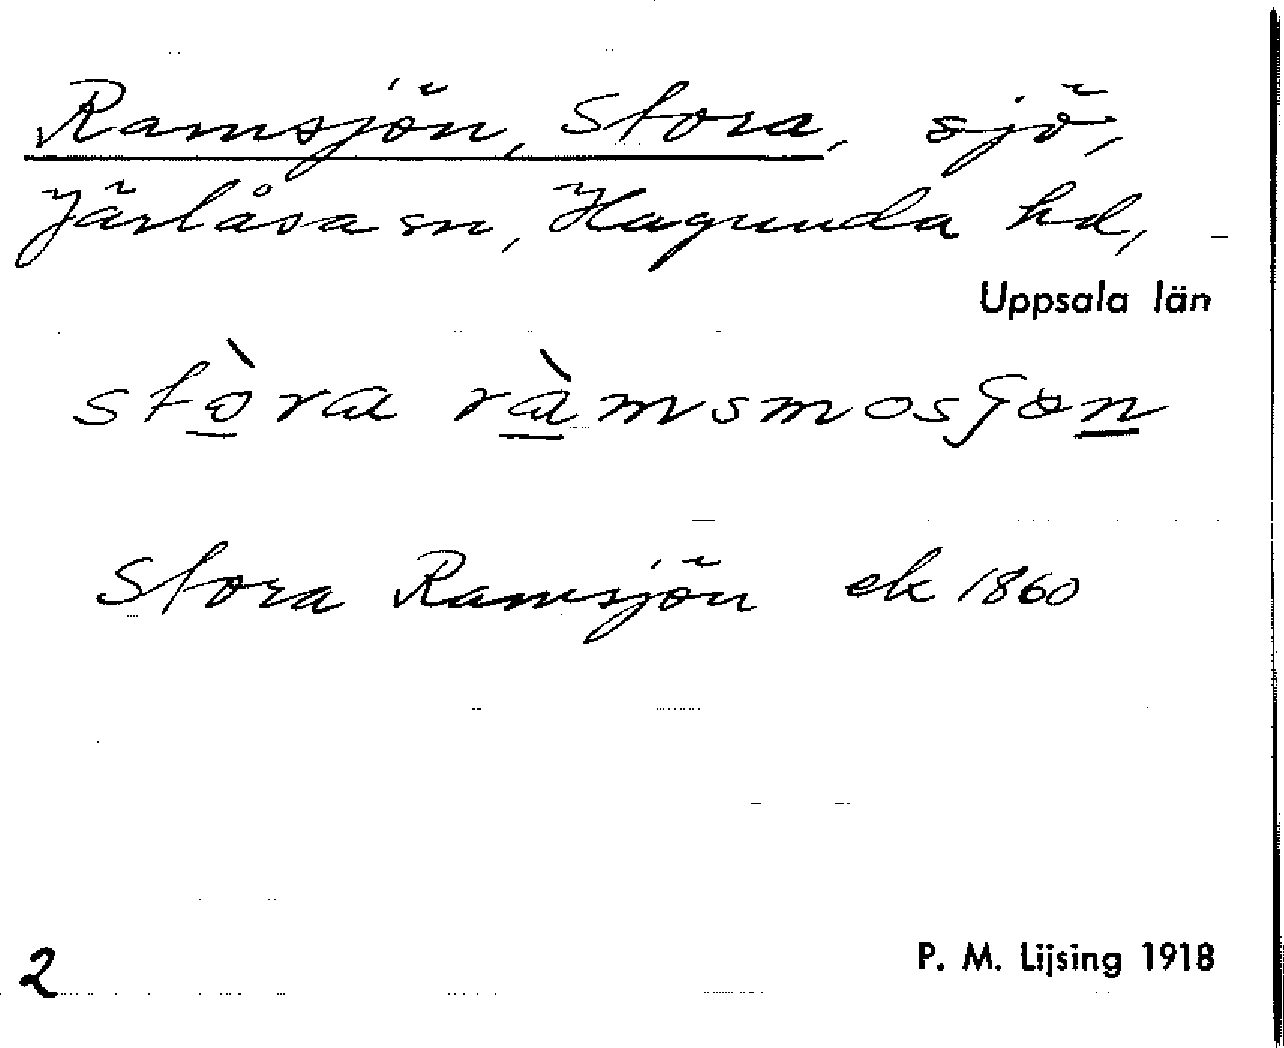 Ramsjön, Stora, sjö,
Järlåsa sn, Hagunda hd,
Uppsala län
stòra ràmsmosjön
Stora Ramsjön ek 1860
2
P. M. Lijsing 1918